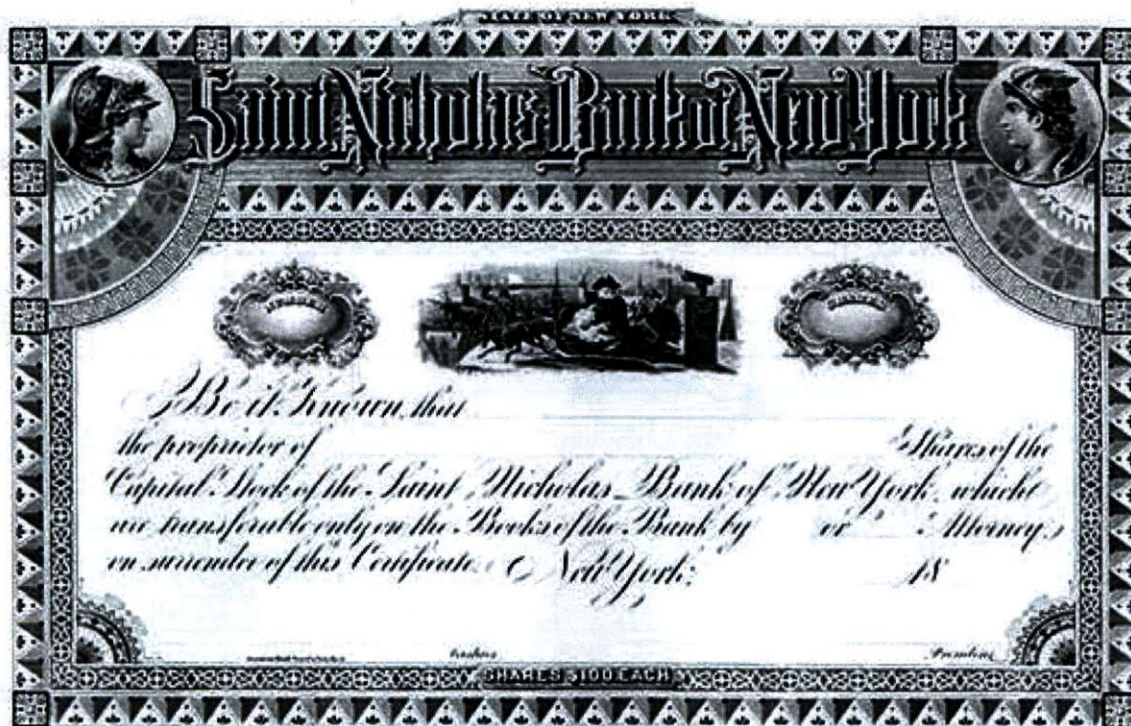 STATE OF NEW YORK
Saint Nicholas Bank of New York
NUMBER
SHARES
Be it Known, that
the proprietor of Shares of the
Capital Stock of the Saint Nicholas Bank of New York, which
are transferable only on the Books of the Bank by or Attorney,
on surrender of this Certificate. New York, 18
Cashier President
SHARES $100 EACH